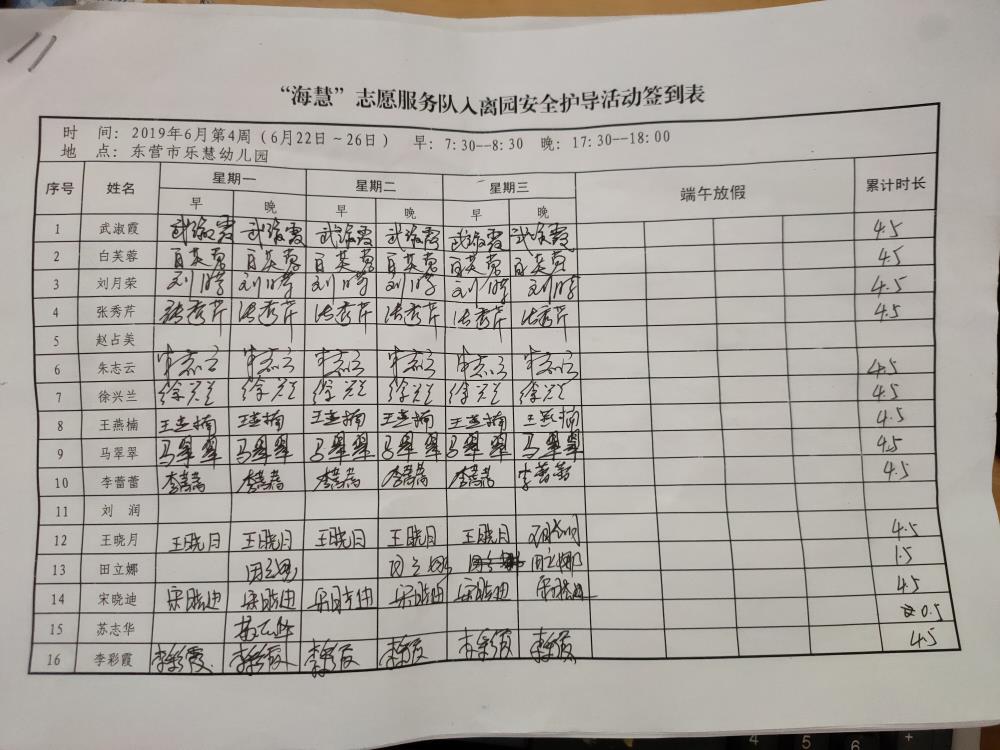 “海慧”志愿服务队入离园安全护导活动签到表
时 间：2019年6月第4周（6月22日～26日） 早：7:30--8:30 晚：17:30--18:00
地 点：东营市乐慧幼儿园
序号 姓名 星期一 星期二 星期三 端午放假 累计时长
早 晚 早 晚 早 晚
1 武淑霞 武淑霞 武淑霞 武淑霞 武淑霞 武淑霞 武淑霞 4.5
2 白芙蓉 白芙蓉 白芙蓉 白芙蓉 白芙蓉 白芙蓉 白芙蓉 4.5
3 刘月荣 刘月荣 刘月荣 刘月荣 刘月荣 刘月荣 刘月荣 4.5
4 张秀芹 张秀芹 张秀芹 张秀芹 张秀芹 张秀芹 张秀芹 4.5
5 赵占美
6 朱志云 朱志云 朱志云 朱志云 朱志云 朱志云 朱志云 4.5
7 徐兴兰 徐兴兰 徐兴兰 徐兴兰 徐兴兰 徐兴兰 徐兴兰 4.5
8 王燕楠 王燕楠 王燕楠 王燕楠 王燕楠 王燕楠 王燕楠 4.5
9 马翠翠 马翠翠 马翠翠 马翠翠 马翠翠 马翠翠 马翠翠 4.5
10 李蕾蕾 李蕾蕾 李蕾蕾 李蕾蕾 李蕾蕾 李蕾蕾 李蕾蕾 4.5
11 刘 润
12 王晓月 王晓月 王晓月 王晓月 王晓月 王晓月 4.5
13 田立娜 田立娜 田立娜 田立娜 1.5
14 宋晓迪 宋晓迪 宋晓迪 宋晓迪 宋晓迪 宋晓迪 宋晓迪 4.5
15 苏志华 苏志华 0.5
16 李彩霞 李彩霞 李彩霞 李彩霞 李彩霞 李彩霞 李彩霞 4.5
4 5 6 +